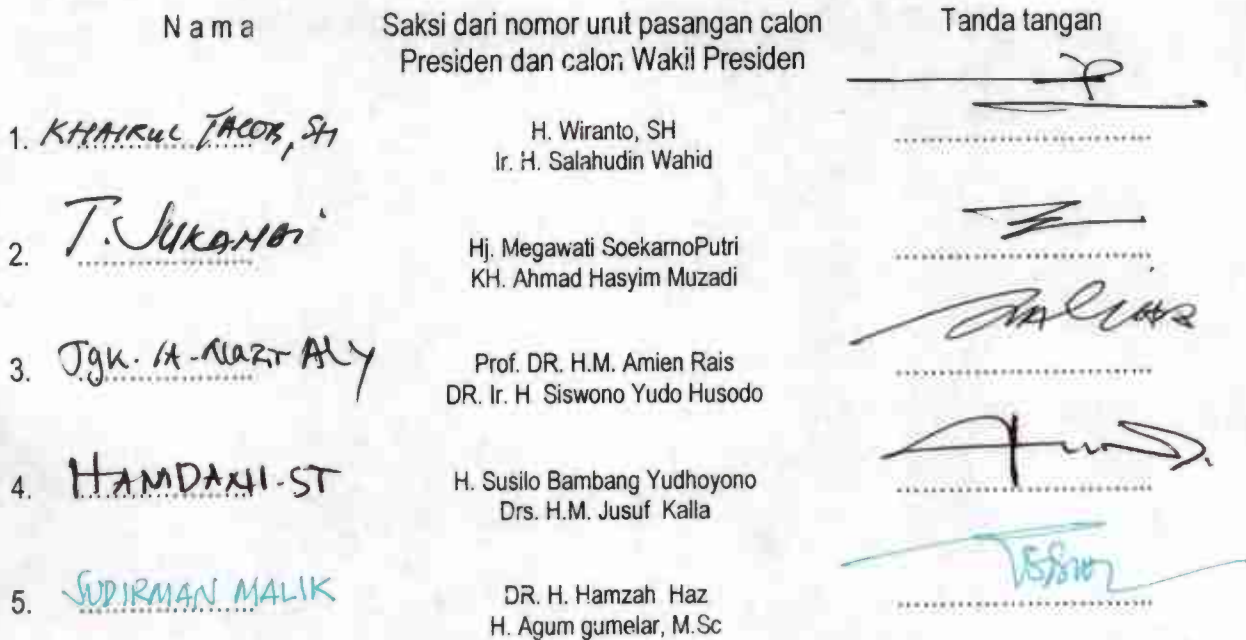 N a m a
Saksi dari nomor urut pasangan calon
Presiden dan calon Wakil Presiden
Tanda tangan
1. KHAIRUL JACOB, SH
H. Wiranto, SH
Ir. H. Salahudin Wahid
2. T. SUKANDI
Hj. Megawati SoekarnoPutri
KH. Ahmad Hasyim Muzadi
3. Tgk. ALY
Prof. DR. H.M. Amien Rais
DR. Ir. H Siswono Yudo Husodo
4. HAMDANI-ST
H. Susilo Bambang Yudhoyono
Drs. H.M. Jusuf Kalla
5. SUDIRMAN MALIK
DR. H. Hamzah Haz
H. Agum gumelar, M.Sc